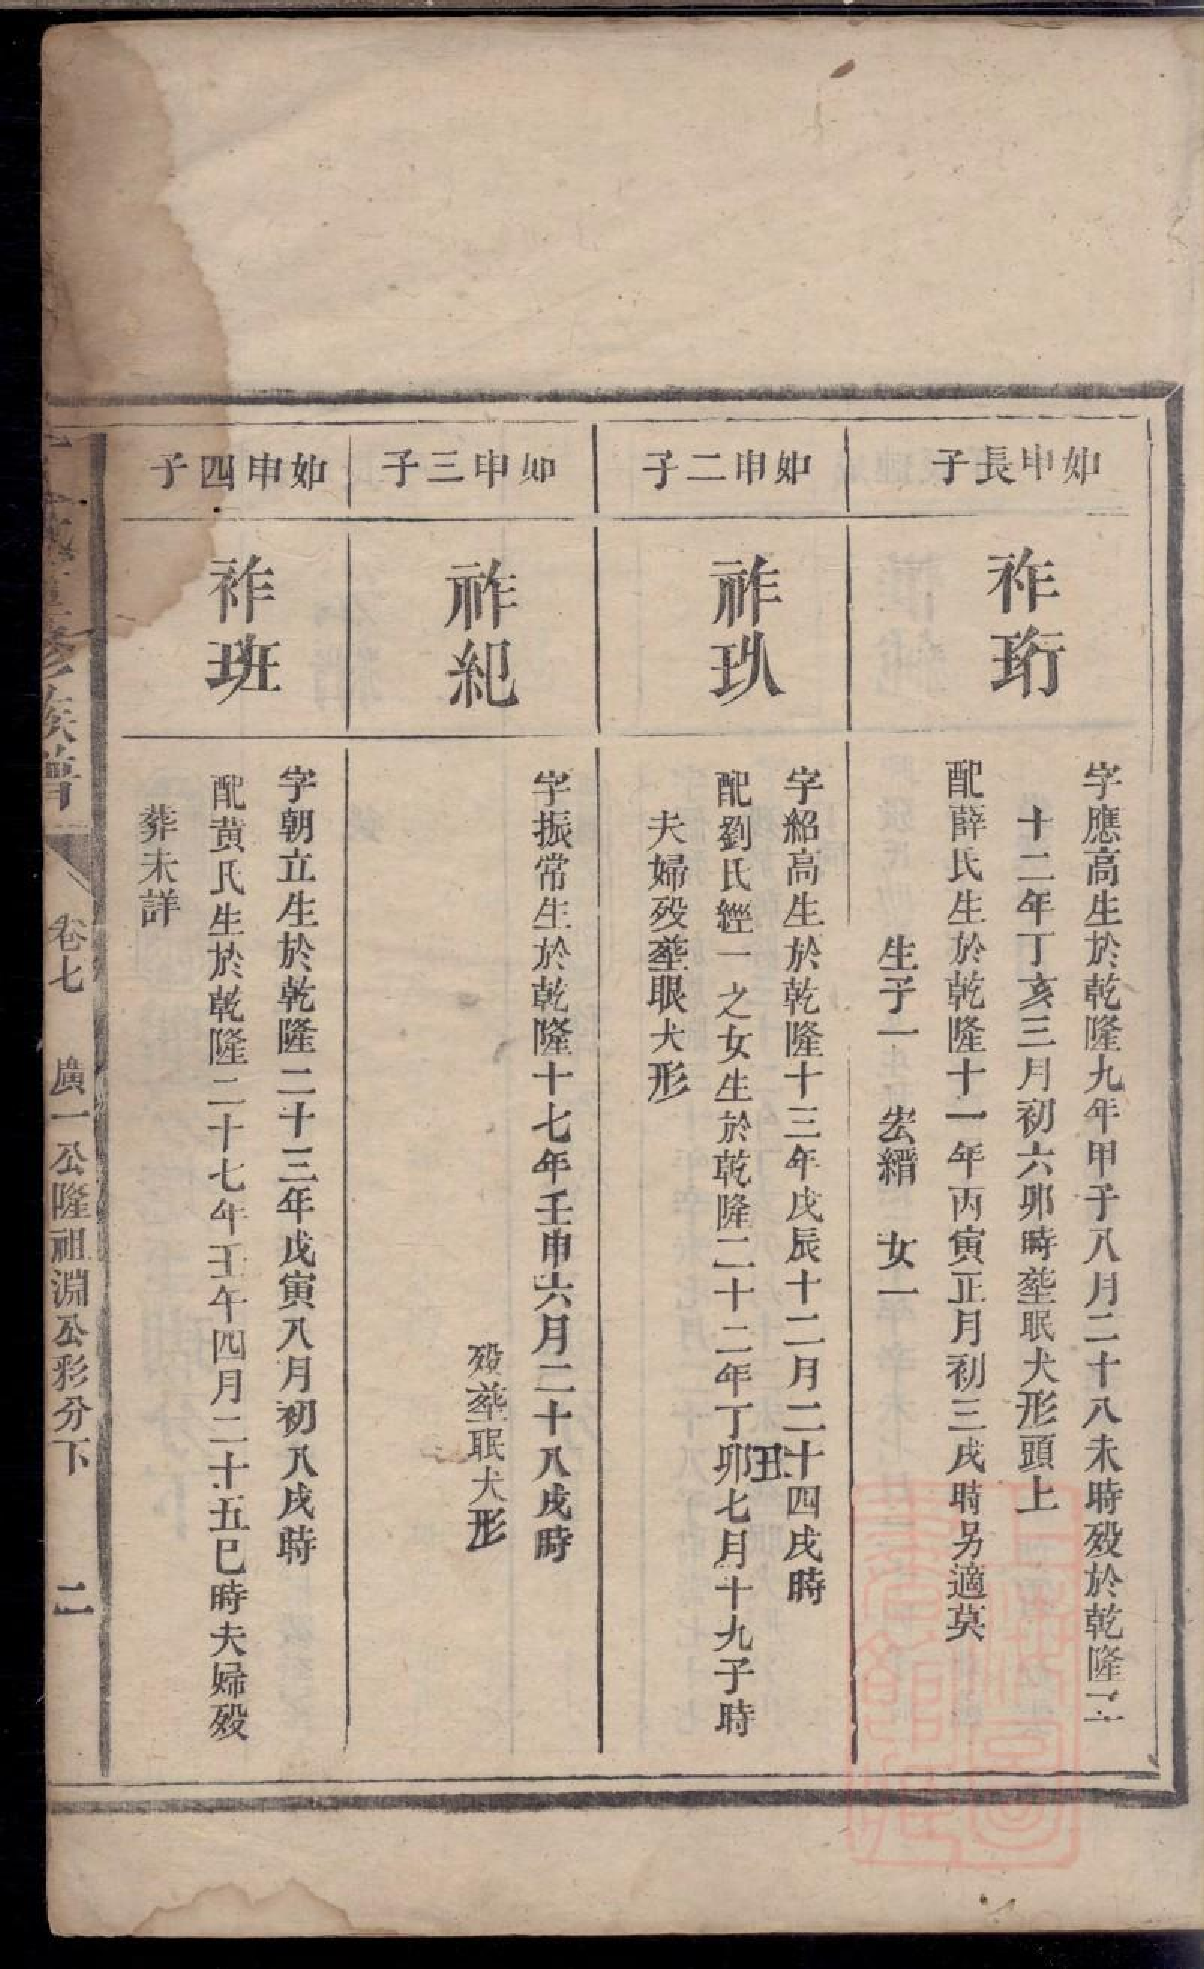 如申長子
祚珩
字應高生於乾隆九年甲子八月二十八未時歿於乾隆三
十二年丁亥三月初六卯時塟眠犬形頭上
配薛氏生於乾隆十一年丙寅正月初三戌時另適莫
生子一 宏縉 女一
如申二子
祚玖
字紹高生於乾隆十三年戊辰十二月二十四戌時
丑
配劉氏經一之女生於乾隆二十二年丁卯七月十九子時
夫婦歿塟眼犬形
如申三子
祚紀
字振常生於乾隆十七年壬申六月二十八戌時
歿塟眠犬形
如申四子
祚班
字朝立生於乾隆二十三年戊寅八月初八戌時
配黄氏生於乾隆二十七年壬午四月二十五巳時夫婦歿
葬未詳
修族譜
卷七 廣一公隆祖淵公彩分下 二